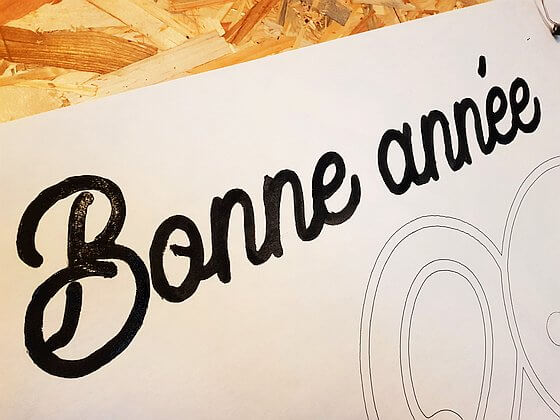 Bonne année